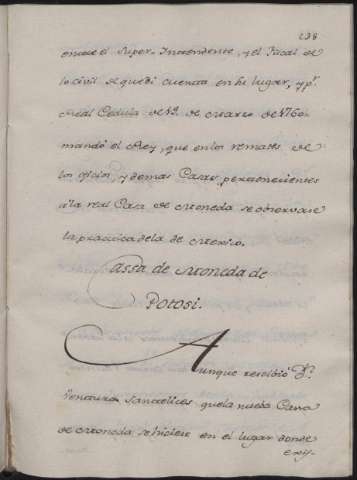 138
entre el Super-Intendente, y el Fiscal de
lo civil se quedó cuenta en su lugar, y pr.
Real Cedula de 12 de Marzo de 1760.
mandó el Rey, que en los remates de
los oficios, y demas Casas, pertenecientes
a la real Casa de Moneda se observase
la practica de la de Mexico.
Cassa de Moneda de
Potosi.
Aunque resolbió Dn.
Ventura Santelices que la nueba Casa
de Moneda se hiciese en el lugar donde
exis-